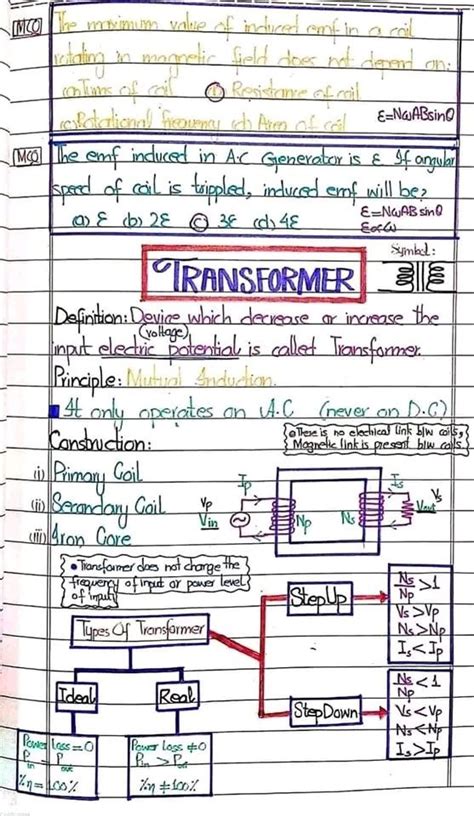 MCQ The maximum value of induced emf in a coil
rotating in magnetic field does not depend on:
(a)Turns of coil (b) Resistance of coil
(c)Rotational frequency (d) Area of coil
Ɛ=NωABsinθ
MCQ The emf induced in A.C Generator is Ɛ If angular
speed of coil is trippled, induced emf will be?
(a) Ɛ (b) 2Ɛ (c) 3Ɛ (d) 4Ɛ
Ɛ=NωAB sinθ
Ɛ∝ω
TRANSFORMER
Symbol:
Definition: Device which decrease or increase the
(voltage)
input electric potential is called Transformer.
Principle: Mutual Induction.
It only operates on A.C (never on D.C)
Construction:
• There is no electrical link b/w coils,
Magnetic link is present b/w coils
(i) Primary Coil
(ii) Secondary Coil
(iii) Iron Core
Ip
Vp
Vin
Np
Ns
Is
Vs
Vout
• Transformer does not change the
frequency of input or power level
of input
Types Of Transformer
Ideal
Power Loss = 0
Pin = Pout
%η = 100%
Real
Power loss ≠ 0
Pin > Pout
%η ≠ 100%
Step Up
Ns/Np > 1
Vs > Vp
Ns > Np
Is < Ip
Step Down
Ns/Np < 1
Vs < Vp
Ns < Np
Is > Ip